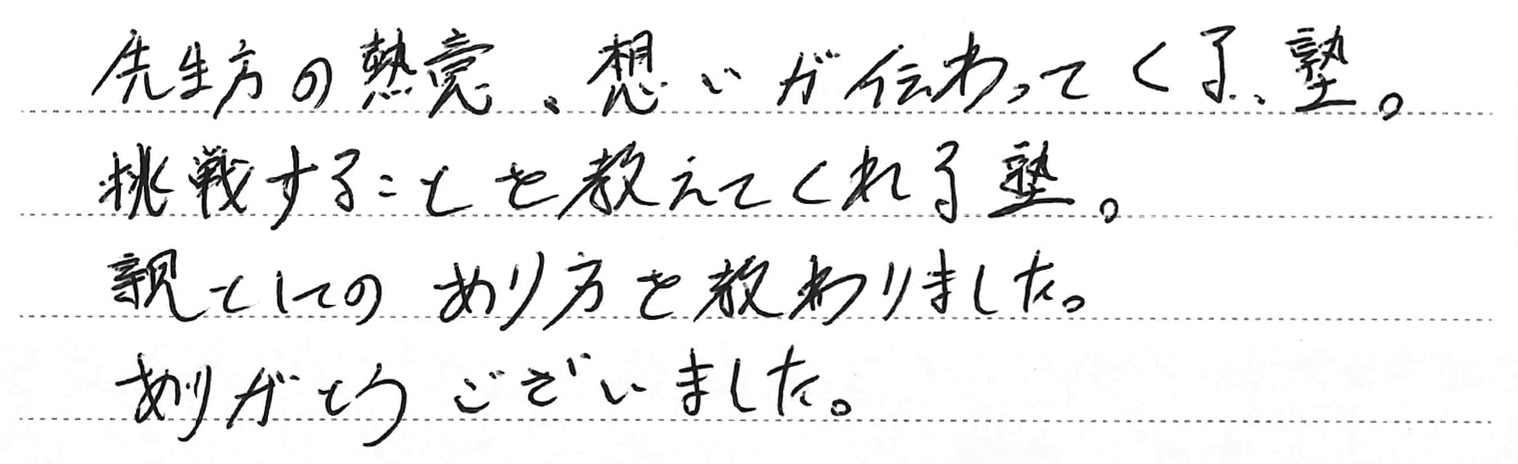 先生方の熱意、想いが伝わってくる、塾。
挑戦することを教えてくれる塾。
親としてのあり方を教わりました。
ありがとうございました。